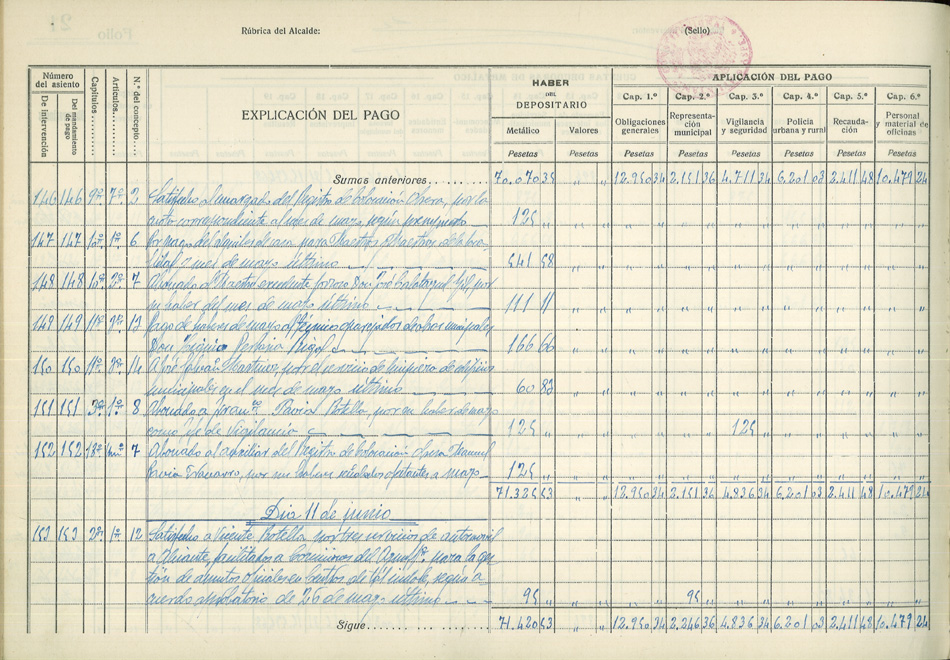 Rúbrica del Alcalde:
(Sello)
Número del asiento
De intervención
Del mandamiento de pago
Capítulos
Artículos
N.º del concepto
EXPLICACIÓN DEL PAGO
HABER DEL DEPOSITARIO
Metálico
Valores
Pesetas Pesetas
APLICACIÓN DEL PAGO
Cap. 1.º Cap. 2.º Cap. 3.º Cap. 4.º Cap. 5.º Cap. 6.º
Obligaciones generales
Representación municipal
Vigilancia y seguridad
Policía urbana y rural
Recaudación
Personal y material de oficinas
Pesetas Pesetas Pesetas Pesetas Pesetas Pesetas
Sumas anteriores 70.070 35 12.950 34 2.151 36 4.711 34 6.201 03 2.411 48 10.479 24
146 146 9º 7º 2 Satisfecho al encargado del Registro de Colocación Obrera, por la
cuota correspondiente al mes de marzo, según presupuesto 125 "
147 147 10º 1º 6 Por pago del alquiler de casa para Maestros y Maestras de la
y mes de marzo último 541 58
148 148 10º 2º 7 Abonado al Maestro excedente forzoso Don José Calatayud Gil, por
su haber del mes de marzo último 111 11
149 149 11º 13 Pago de haberes de marzo al técnico aparejador de obras municipales
Don 166 66
150 150 11º 14 A José Galván Martínez, por el servicio de limpieza de edificios
municipales en el mes de marzo último 60 83
151 151 3º 1º 8 Abonado a Franco. Pavia Botella, por su haber de marzo
como Jefe de Vigilancia 125 " 125 "
152 152 18º 7 Abonado al auxiliar del Registro de Colocación Obrera Manuel
Pavia Navarro, por sus haberes señalados a marzo 125 "
71.325 53 12.950 34 2.151 36 4.836 34 6.201 03 2.411 48 10.479 24
Día 11 de junio
153 153 2º 1º 12 Satisfecho a Vicente Botella por tres servicios de automóvil
a Alicante, facilitados a Comisiones del Ayuntº. para la ges-
tión de asuntos oficiales en Centros de tal índole, según a-
cuerdo aprobatorio de 26 de marzo último 95 " 95 "
Sigue 71.420 53 12.950 34 2.246 36 4.836 34 6.201 03 2.411 48 10.479 24